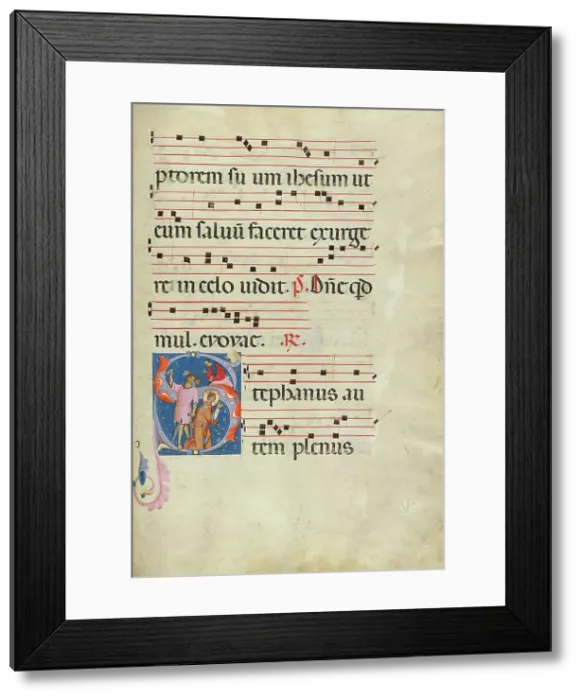 ptorem su um ihesum ut
eum saluū faceret exurge
re in celo uidit. ps. Dn̄e qd
mul. evovae. .R.
tephanus au
tem plenus